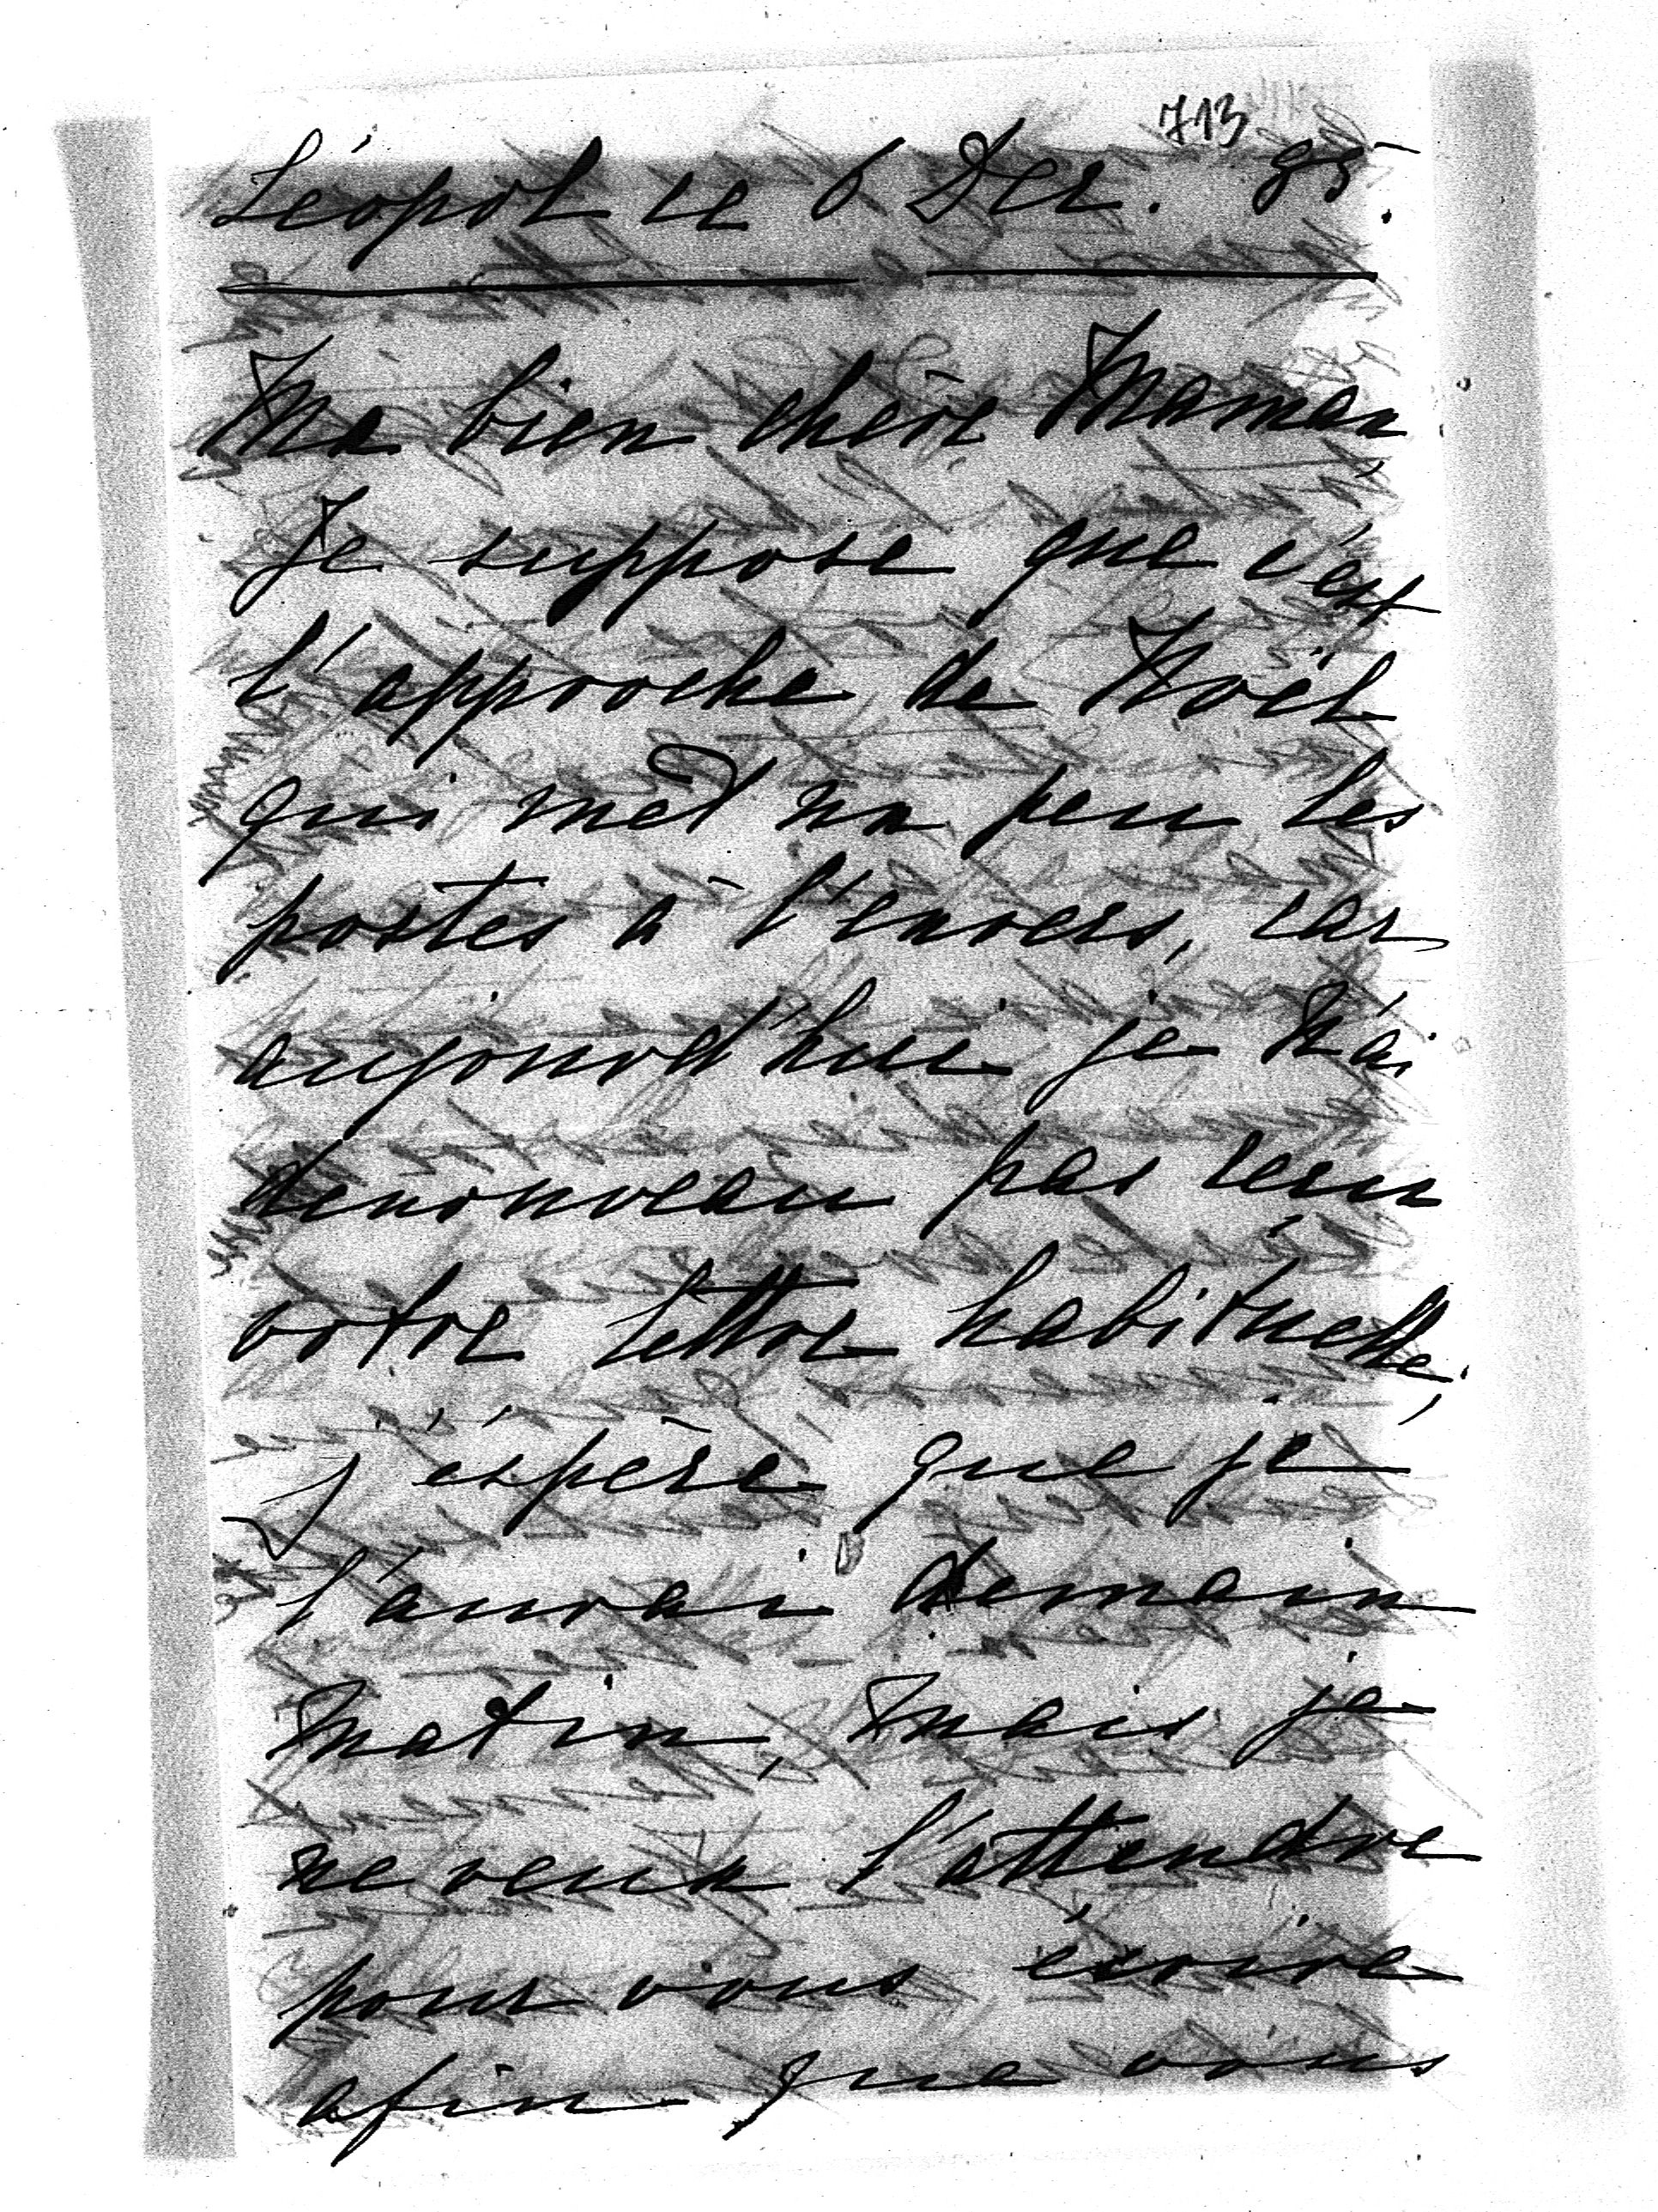 713
Léopol le 6 Dec. 95.
Ma bien chère Maman
Je suppose que c'est
l'approche de Noël
qui met un peu les
postes à l'envers, car
aujourd'hui je n'ai
denouveau pas reçu
votre lettre habituelle,
j'éspère que je
l'aurai demain
matin, mais je
ne veux l'attendre
pour vous écrire
afin que vous